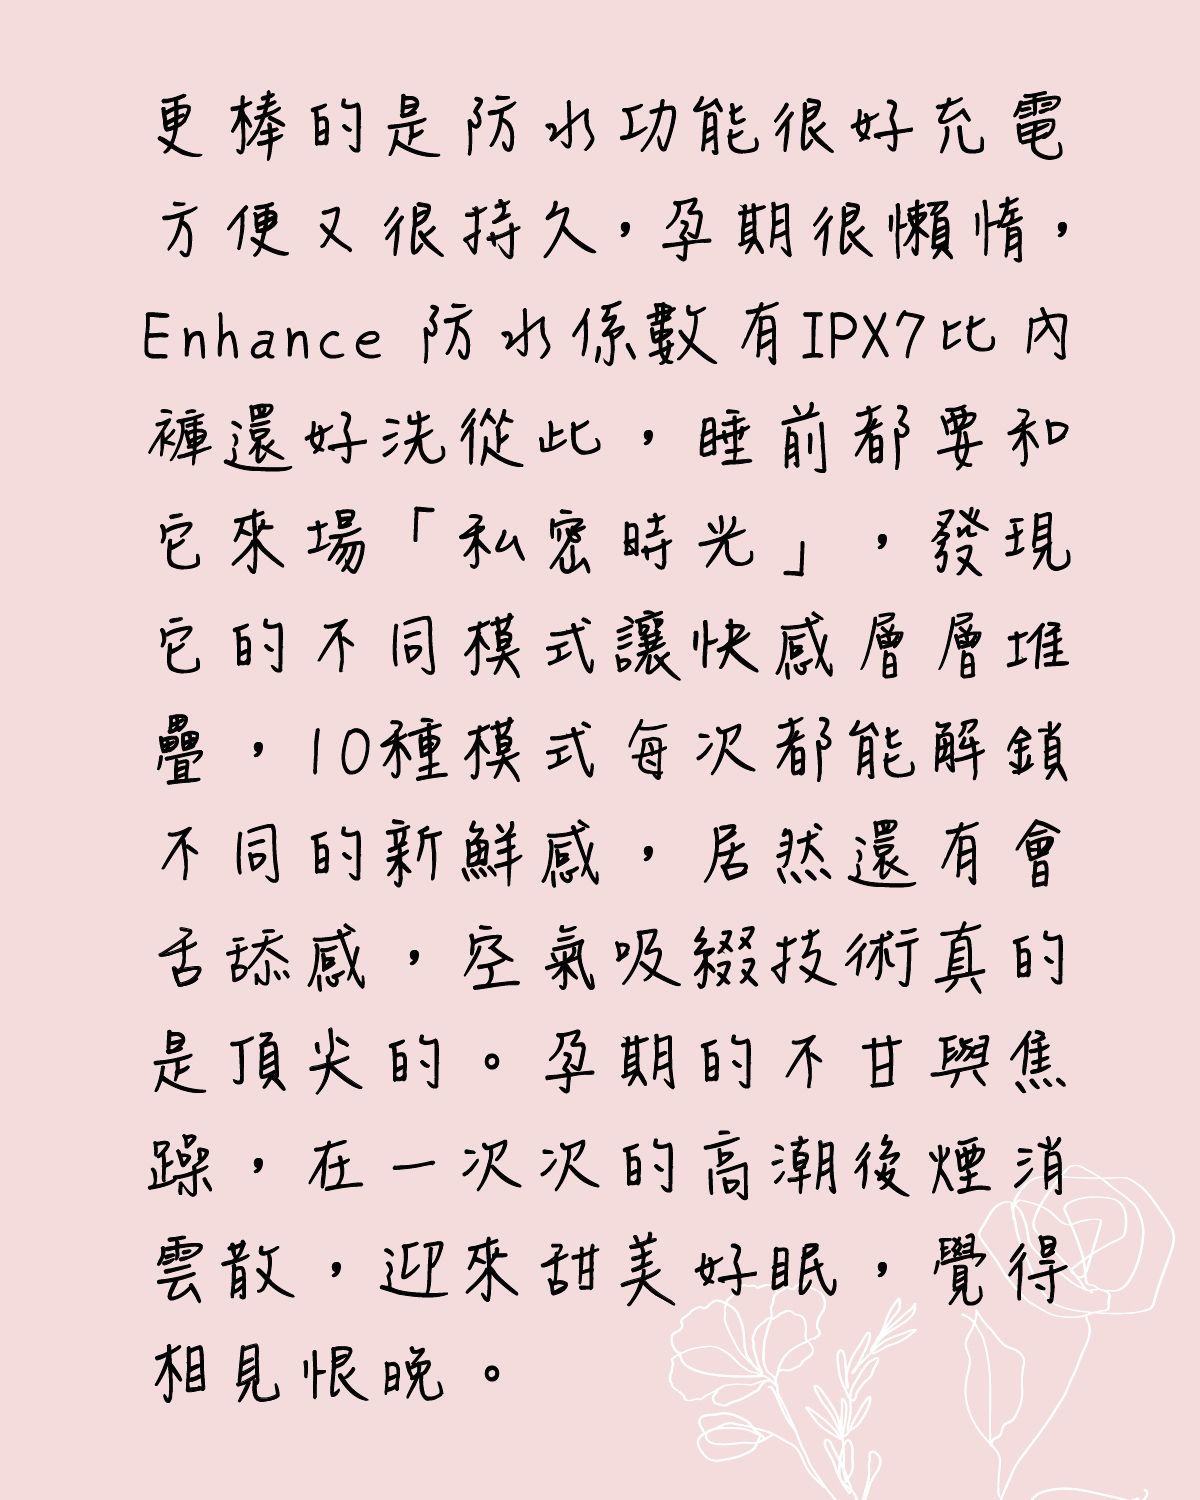 更棒的是防水功能很好充電
方便又很持久，孕期很懶惰，
Enhance 防水係數有IPX7比內
褲還好洗從此，睡前都要和
它來場「私密時光」，發現
它的不同模式讓快感層層堆
疊，10種模式每次都能解鎖
不同的新鮮感，居然還有會
舌舔感，空氣吸綴技術真的
是頂尖的。孕期的不甘與焦
躁，在一次次的高潮後煙消
雲散，迎來甜美好眠，覺得
相見恨晚。